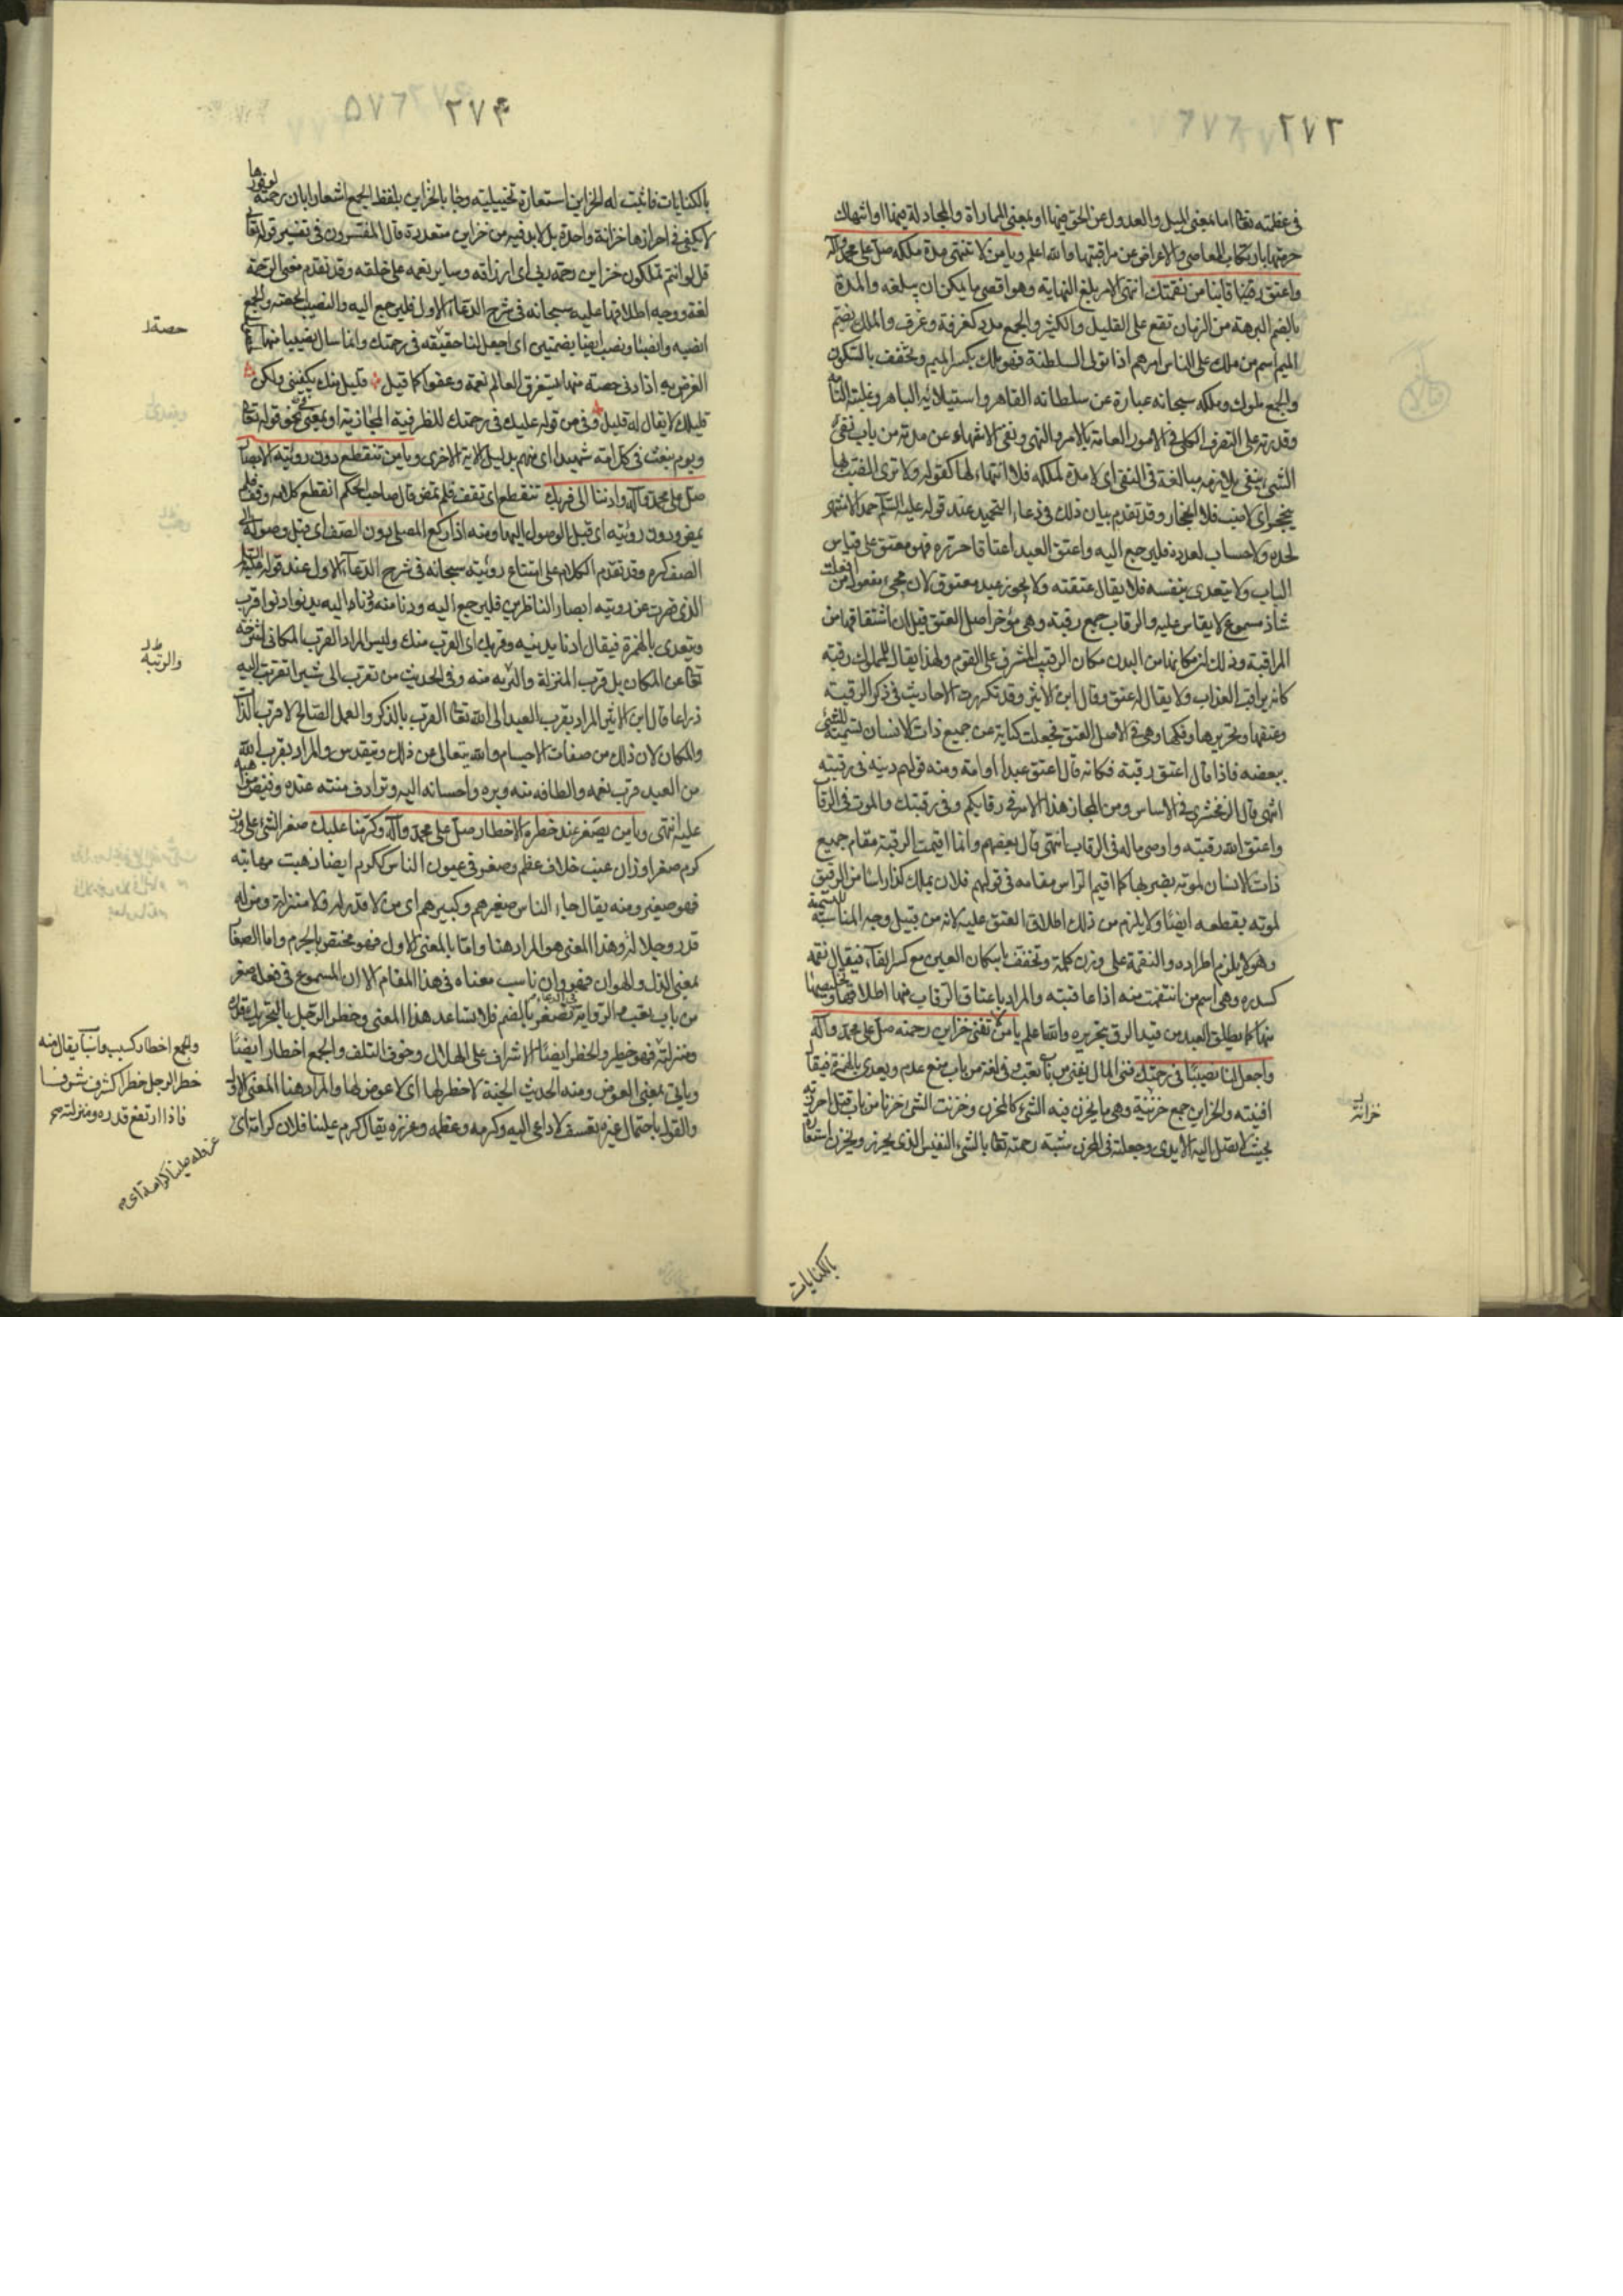 ٢٧٣
في عظمته تعالى اما بمعنى الميل والعدول عن الحق فيها او بمعنى المماراة والمجادلة فيها او انتهاك
حرمتها بارتكاب المعاصي والاعراض عن مراقبتها والله اعلم ويا من لا تنتهي مدة ملكه صل على محمد وآله
واعتق رقابنا من نقمتك انتهى الامر بلغ النهاية وهو اقصى ما يمكن ان يبلغه والمدة
بالضم البرهة من الزمان تقع على القليل والكثير والجمع مدد كغرفة وغرف والملك بضم
الميم اسم من ملك على الناس امرهم اذا تولى السلطنة فهو ملك بكسر الميم وتخفف بالسكون
والجمع ملوك وملكه سبحانه عبارة عن سلطانه القاهر واستيلائه الباهر وغلبته التامة
وقدرته على التصرف الكلي في الامور العامة بالامر والنهي ونفي الانتهاء عن مدته من باب نفي
الشيء بنفي لازمه مبالغة في النفي اي لا مدة لملكه فلا انتهاء لها كقوله ولا ترى الضب بها
ينجحر اي لا ضب فلا انجحار وقد تقدم بيان ذلك في دعاء التحميد عند قوله عليه السلام حمدا لا منتهى
لحده ولا حساب لعدده فليرجع اليه واعتق العبد اعتاقا حرره فهو معتق على قياس
الباب ولا يتعدى بنفسه فلا يقال عتقته ولا يجوز عبد معتوق لان مجيء مفعول من افعلت
شاذ مسموع لا يقاس عليه والرقاب جمع رقبة وهي مؤخر اصل العنق قيل ان اشتقاقها من
المراقبة وذلك انه مكانها من البدن مكان الرقيب المشرف على القوم ولهذا يقال للمملوك رقبة
كانه يراقب العذاب ولا يقال له عنق وقال ابن الاثير وقد تكررت الاحاديث في ذكر الرقبة
وعتقها وتحريرها وفكها وهي في الاصل العنق فجعلت كناية عن جميع ذات الانسان تسمية للشيء
ببعضه فاذا قال اعتق رقبة فكانه قال اعتق عبدا او امة ومنه قولهم دينه في رقبته
انتهى قال الزمخشري في الاساس ومن المجاز هذا الامر في رقابكم وفي رقبتك والموت في الرقاب
واعتق الله رقبته واوصى بماله في الرقاب انتهى قال بعضهم وانما اقيمت الرقبة مقام جميع
ذات الانسان لموته بضربها كما اقيم الراس مقامه في قولهم فلان يملك كذا راسا من الرقيق
لموته بقطعه ايضا ولا يلزم من ذلك اطلاق العنق عليه لانه من قبيل وجه المناسبة للتسمية
وهو لا يلزم اطراده والنقمة على وزن كلمة وتخفف باسكان العين مع كسر الفاء فيقال نقمة
كسدرة وهي اسم من انتقمت منه اذا عاقبته والمراد باعتاق الرقاب منها اطلاقها وتخليصها
منها كما يطلق العبد من قيد الرق بتحريره والله اعلم يا من لا تفنى خزاين رحمته صل على محمد وآله
واجعل لنا نصيبا في رحمتك فني المال يفنى من باب تعب وفي لغة من باب منع عدم ويعدى بالهمزة فيقال
افنيته والخزاين جمع خزينة وهي ما يخزن فيه الشيء كالمخزن وخزنت الشيء خزنا من باب قتل احرزته
بحيث لا تصل اليه الايدي وجعلته في المخزن شبه رحمته تعالى بالشيء النفيس الذي يحرز ويخزن استعارة
خزانة
بالكنايات
٢٧٤
بالكنايات فاثبت له الخزاين استعارة تخييلية وجاء بالخزاين بلفظ الجمع اشعارا بان رحمته لوفورها
لا يكفي في احرازها خزانة واحدة بل لا بد فيه من خزاين متعددة قال المفسرون في تفسير قوله تعالى
قل لو انتم تملكون خزاين رحمة ربي اي ارزاقه وساير نعمه على خلقه وقد تقدم معنى الرحمة
لغة ووجه اطلاقها عليه سبحانه في شرح الدعاء الاول فليرجع اليه والنصيب الحصة والجمع
انصبة وانصباء ونصب ايضا بضمتين اي اجعل لنا حقيقة في رحمتك وانما سال نصيبا منها
الغرض به اذ ادنى حصة منها يستغرق العالم نعمة وعفوا كما قيل قليل منك يكفيني ولكن
قليلك لا يقال له قليل وفي من قوله عليك في رحمتك للظرفية المجازية او بمعنى من نحو قوله تعالى
ويوم نبعث في كل امة شهيدا اي منهم بدليل الاية الاخرى ويا من تنقطع دون رؤيته الابصار
صل على محمد وآله وادننا الى قربك تنقطع اي تقف فلم تمض قال صاحب المحكم انقطع كلامه وقف فلم
يمض ودون رؤيته اي قبل الوصول اليها ومنه اذا ركع المصلي دون الصف اي قبل وصوله الى
الصف كره وقد تقدم الكلام على امتناع رؤيته سبحانه في شرح الدعاء الاول عند قوله عليه السلام
الذي قصرت عن رؤيته ابصار الناظرين فليرجع اليه ودنا منه ودنا اليه يدنو ادنوا قرب
ويتعدى بالهمزة فيقال ادناه يدنيه وقربك اي القرب منك وليس المراد القرب المكاني لتنزهه
تعالى عن المكان بل قرب المنزلة والرتبة منه وفي الحديث من تقرب الى شبرا تقربت اليه
ذراعا قال ابن الاثير المراد بقرب العبد الى الله تعالى القرب بالذكر والعمل الصالح لا قرب الذات
والمكان لان ذلك من صفات الاجسام والله يتعالى عن ذلك ويتقدس والمراد بقرب الله
من العبد قرب نعمه والطافه منه وبره واحسانه اليه وترادف مننه عنده وفيض مواهبه
عليه انتهى ويا من يصغر عند خطره الاخطار صل على محمد وآله وكرمنا عليك صغر الشيء على وزن
كرم صغرا وزان عنب خلاف عظم وصغر في عيون الناس ككرم ايضا ذهبت مهابته
فهو صغير ومنه يقال جاء الناس صغيرهم وكبيرهم اي من لا قدر له ولا منزلة ومن له
قدر وجلالة وهذا المعنى هو المراد هنا واما بالمعنى الاول فهو مختص بالجرم واما الصغار
بمعنى الذل والهوان فهو وان ناسب معناه في هذا المقام الا ان المسموع في فعله صغر
من باب تعب والرواية في الدعاء تصغر بالضم فلا تساعد هذا المعنى وخطر الرجل بالتحريك قدره
ومنزلته فهو خطير والخطر ايضا الاشراف على الهلاك وخوف التلف والجمع اخطار ايضا
وياتي بمعنى العوض ومنه الحديث الجنة لا خطر لها اي لا عوض لها والمراد هنا المعنى الاول
والقول باحتمال غيره تعسف لا داعي اليه وكرمه وعظمه وعززه يقال كرم علينا فلان كرامة اي
حصة
والرتبة
والجمع اخطار كسبب واسباب يقال منه
خطر الرجل خطرا كشرف شرفا
فاذا ارتفع قدره ومنزلته
عز وله علينا كرامة اي